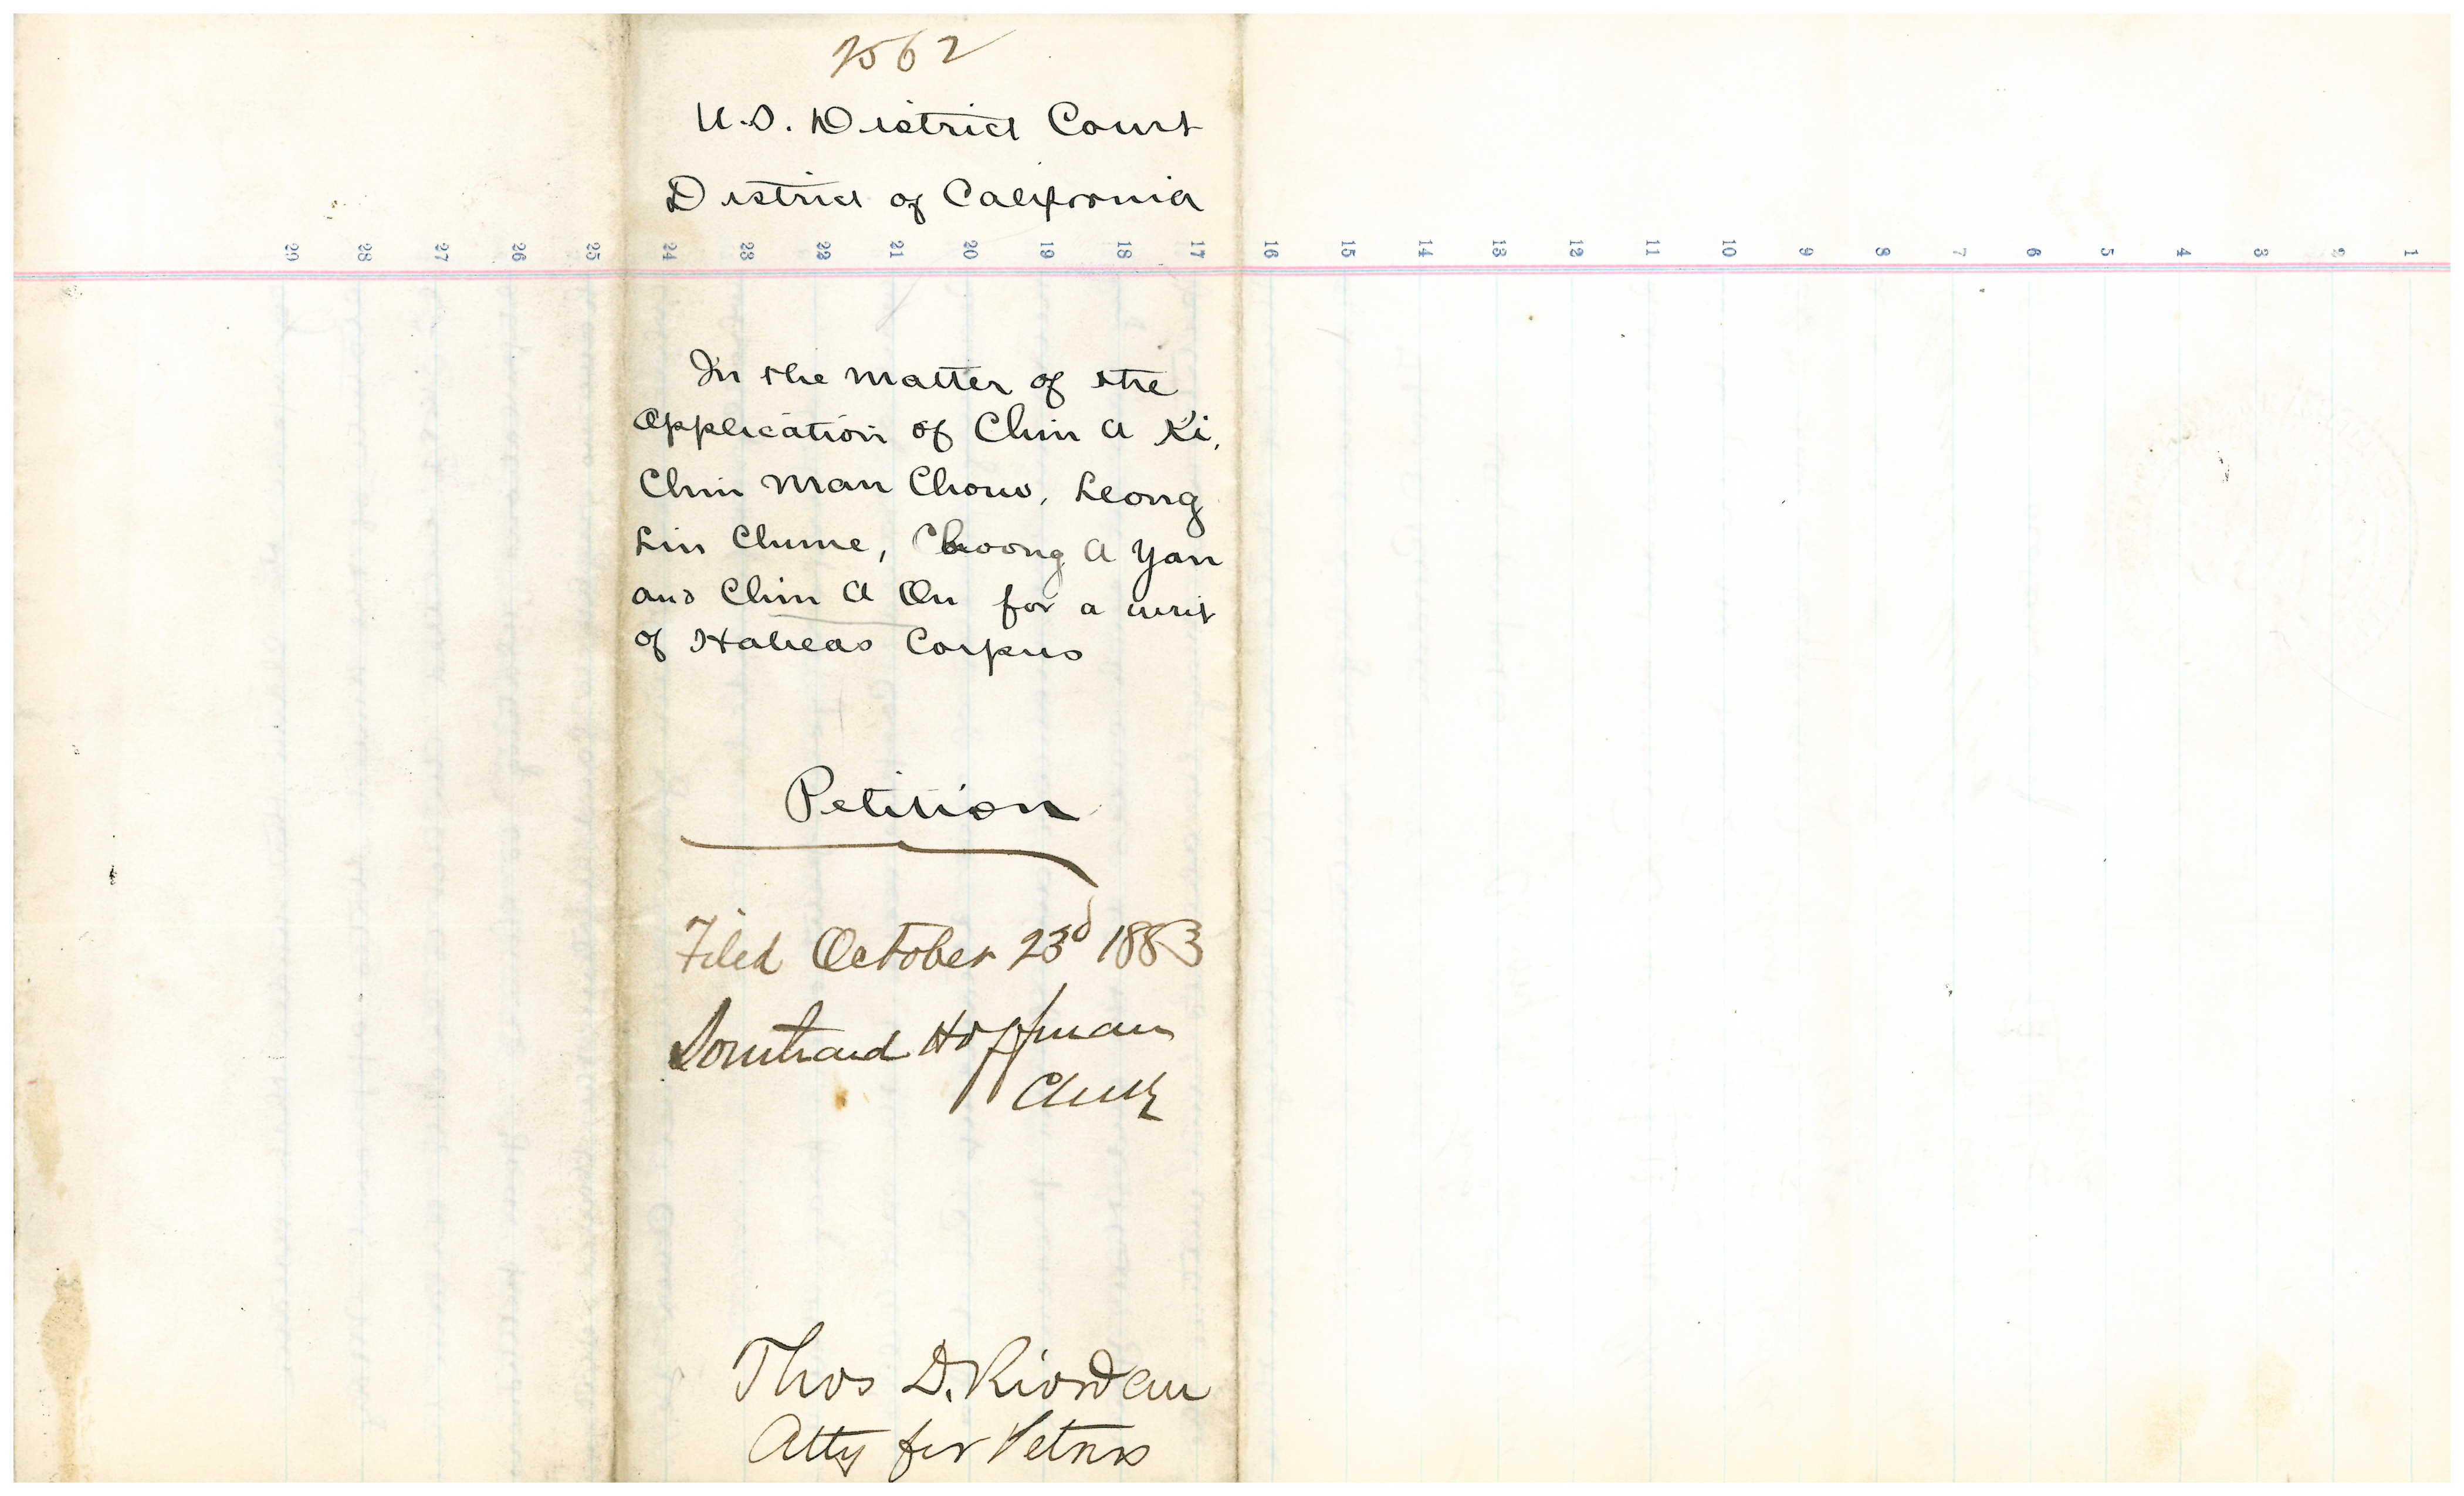 2562
U.S. District Court
District of California
29 28 27 26 25 24 23 22 21 20 19 18 17 16 15 14 13 12 11 10 9 8 7 6 5 4 3 2 1
In the matter of the
application of Chin A Ki,
Chin Man Chow, Leong
Lin Chune, Choong A Yan
and Chin A On for a writ
of Habeas Corpus
Petition
Filed October 23d 1883
Southard Hoffman
Clerk
Thos D. Riordan
Atty for Petnrs